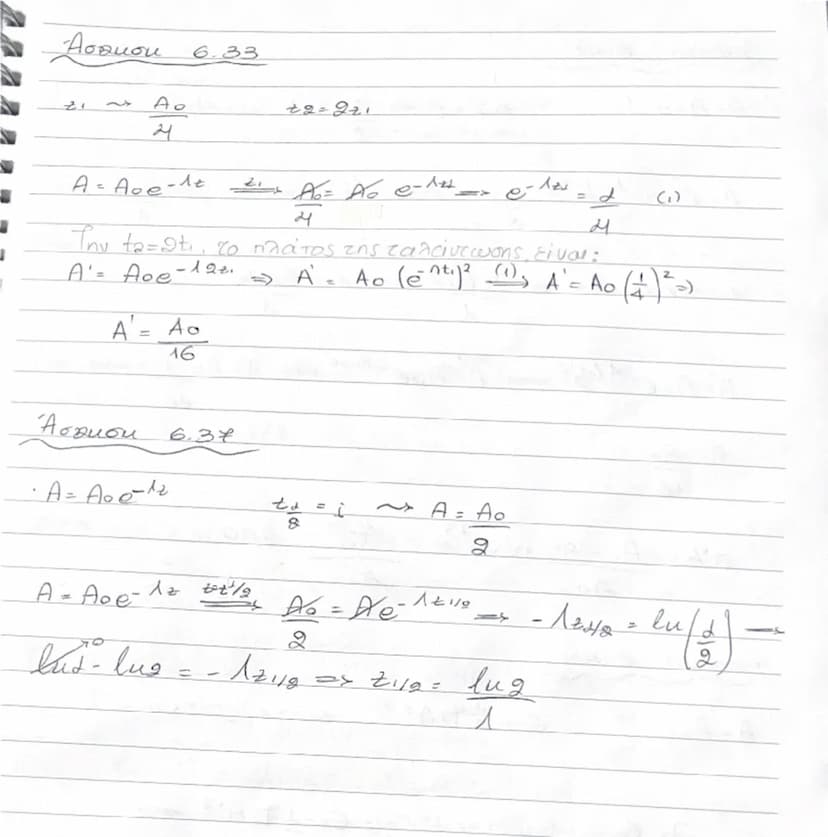 Άσκηση 6.33
t₁ ⇝ A₀/4 t₂=2t₁
A = A₀e^{-Λt} ⟹(t₁) A₀/4 = A₀ e^{-Λt₁} ⟹ e^{-Λt₁} = 1/4 (1)
Την t₂=2t₁, το πλάτος της ταλάντωσης είναι:
A' = A₀e^{-Λ2t₁} ⟹ A' = A₀ (e^{-Λt₁})² ⟹(1) A' = A₀ (1/4)² ⟹
A' = A₀/16
Άσκηση 6.37
· A = A₀e^{-Λt} t_{1/2} = ; ⇝ A = A₀/2
A = A₀e^{-Λt} ⟹(t=t_{1/2}) A₀/2 = A₀e^{-Λt_{1/2}} ⟹ -Λt_{1/2} = ln(1/2) ⟹
ln1→0 - ln2 = -Λt_{1/2} ⟹ t_{1/2} = ln2/Λ